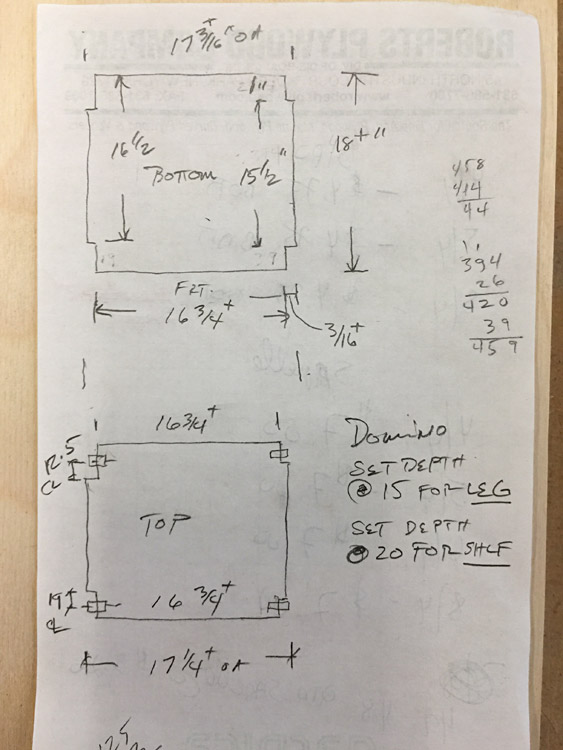 17 3/16+" OA
1"
16 1/2
BOTTOM
15 1/2"
18+"
458
414
44
394
26
420
39
459
FRT.
16 3/4+
3/16+
16 3/4+
12.5
CL
TOP
DOMINO
SET DEPTH
@ 15 FOR LEG
SET DEPTH
@ 20 FOR SHLF
19
CL
16 3/4+
17 1/4+ OA